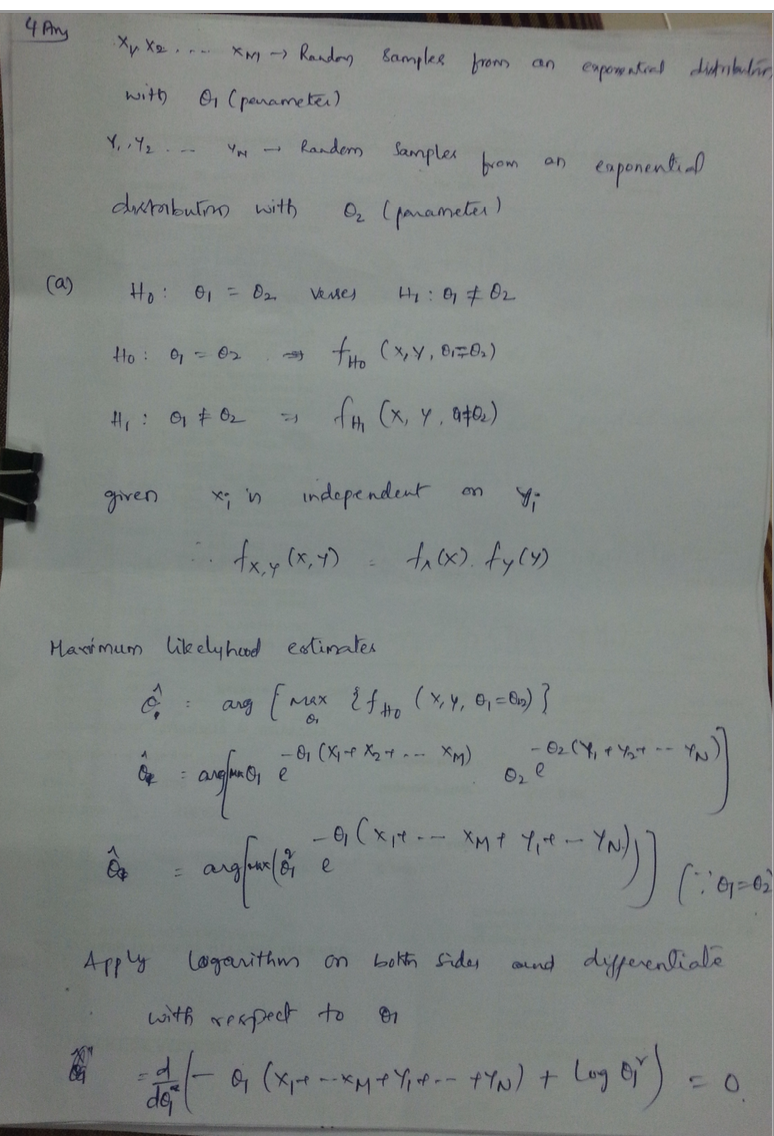 4 Ans
X1, X2 .... XM → Random samples from an exponential distribution
with θ1 (parameter)
Y1, Y2 .... YN → Random samples from an exponential
distribution with θ2 (parameter)
(a) H0 : θ1 = θ2 verses H1 : θ1 ≠ θ2
H0 : θ1 = θ2 ⇒ fH0 (X, Y, θ1=θ2)
H1 : θ1 ≠ θ2 ⇒ fH1 (X, Y, θ1≠θ2)
given xi is independent on yi
∴ fX,Y (X,Y) = fX(X). fY(Y)
Maximum likelyhood estimates
θ̂1 : arg [ max θ1 { fH0 (X, Y, θ1=θ2) } ]
: arg [ max θ1 e^{-θ1 (X1+X2+ ... XM)} θ2 e^{-θ2 (Y1+Y2+ ... YN)} ]
= arg [ max ( θ1^2 e^{-θ1 (X1+ ... XM + Y1+ ... YN)} ) ] (∵ θ1=θ2)
Apply logarithm on both sides and differentiate
with respect to θ1
= d/dθ1 ( - θ1 (X1+ ... XM+Y1+ ... +YN) + log θ1^2 ) = 0